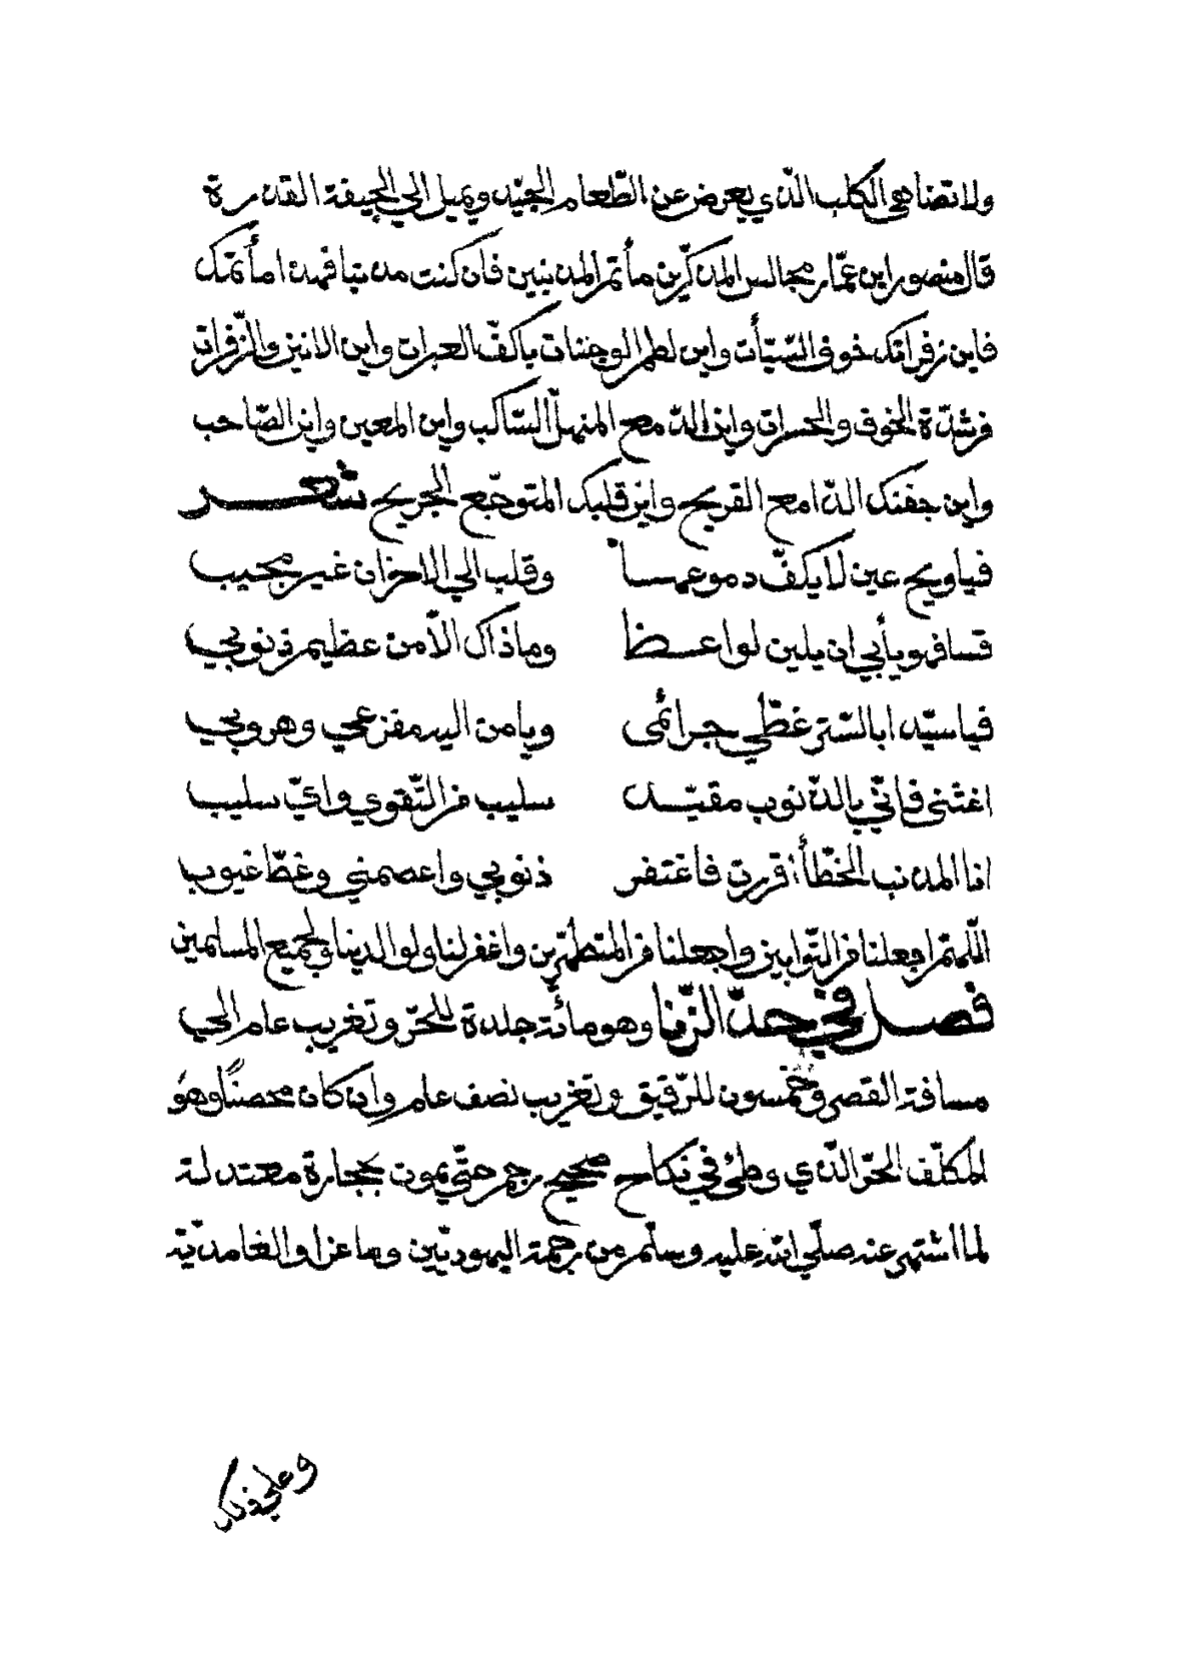 ولا تضاهي الكلب الذي يعرض عن الطعام الجيد ويميل الي الجيفة القذرة
قال منصور ابن عمار مجالس المذكرين مأتم المذنبين فان كنت مذنبا فهذا مأتمك
فاين زفراتك خوف السيأت واين لطم الوجنات ياكف العبرات واين الانين والزفرات
من شدة الخوف والحسرات واين الدمع المنهل الساكب واين المعين واين الصاحب
واين جفنك الدامع القريح واين قلبك المتوجع الجريح شعر
فياويح عين لا يكف دموعها وقلب الي الاحزان غير مجيب
قسا فهو يأبي ان يلين لواعظ وما ذاك الا من عظيم ذنوبي
فيا سيدا بالستر غطي جرائمى ويا من اليه مفزعي وهروبي
اغثنى فاني بالذنوب مقيد سليب من التقوي واي سليب
انا المذنب الخطأ اقررت فاغتفر ذنوبي واعصمني وغط غيوب
اللهم اجعلنا من التوابين واجعلنا من المتطهرين واغفر لنا ولوالدينا ولجميع المسلمين
فصل في حد الزنا وهو مائة جلدة للحر وتغريب عام الي
مسافة القصر وخمسون للرقيق وتغريب نصف عام وان كان محصنا وهو
المكلف الحر الذي وطئ في نكاح صحيح رجم حتي يموت بحجارة معتدلة
لما اشتهر عنه صلي الله عليه وسلم من رجمة اليهوديين وماعزا والغامدية
وعلي ذلك